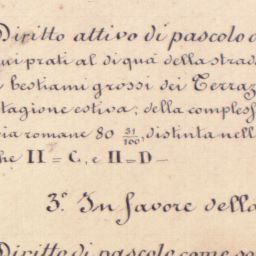 Diritto attivo di pascolo
sui prati al di quà della strad
bestiami grossi dei Terraz
tagione estiva; della comples
ia romane 80 31/100, distinta nell
he II = C, e II = D —
3º. In favore della
Diritto di pascolo come so